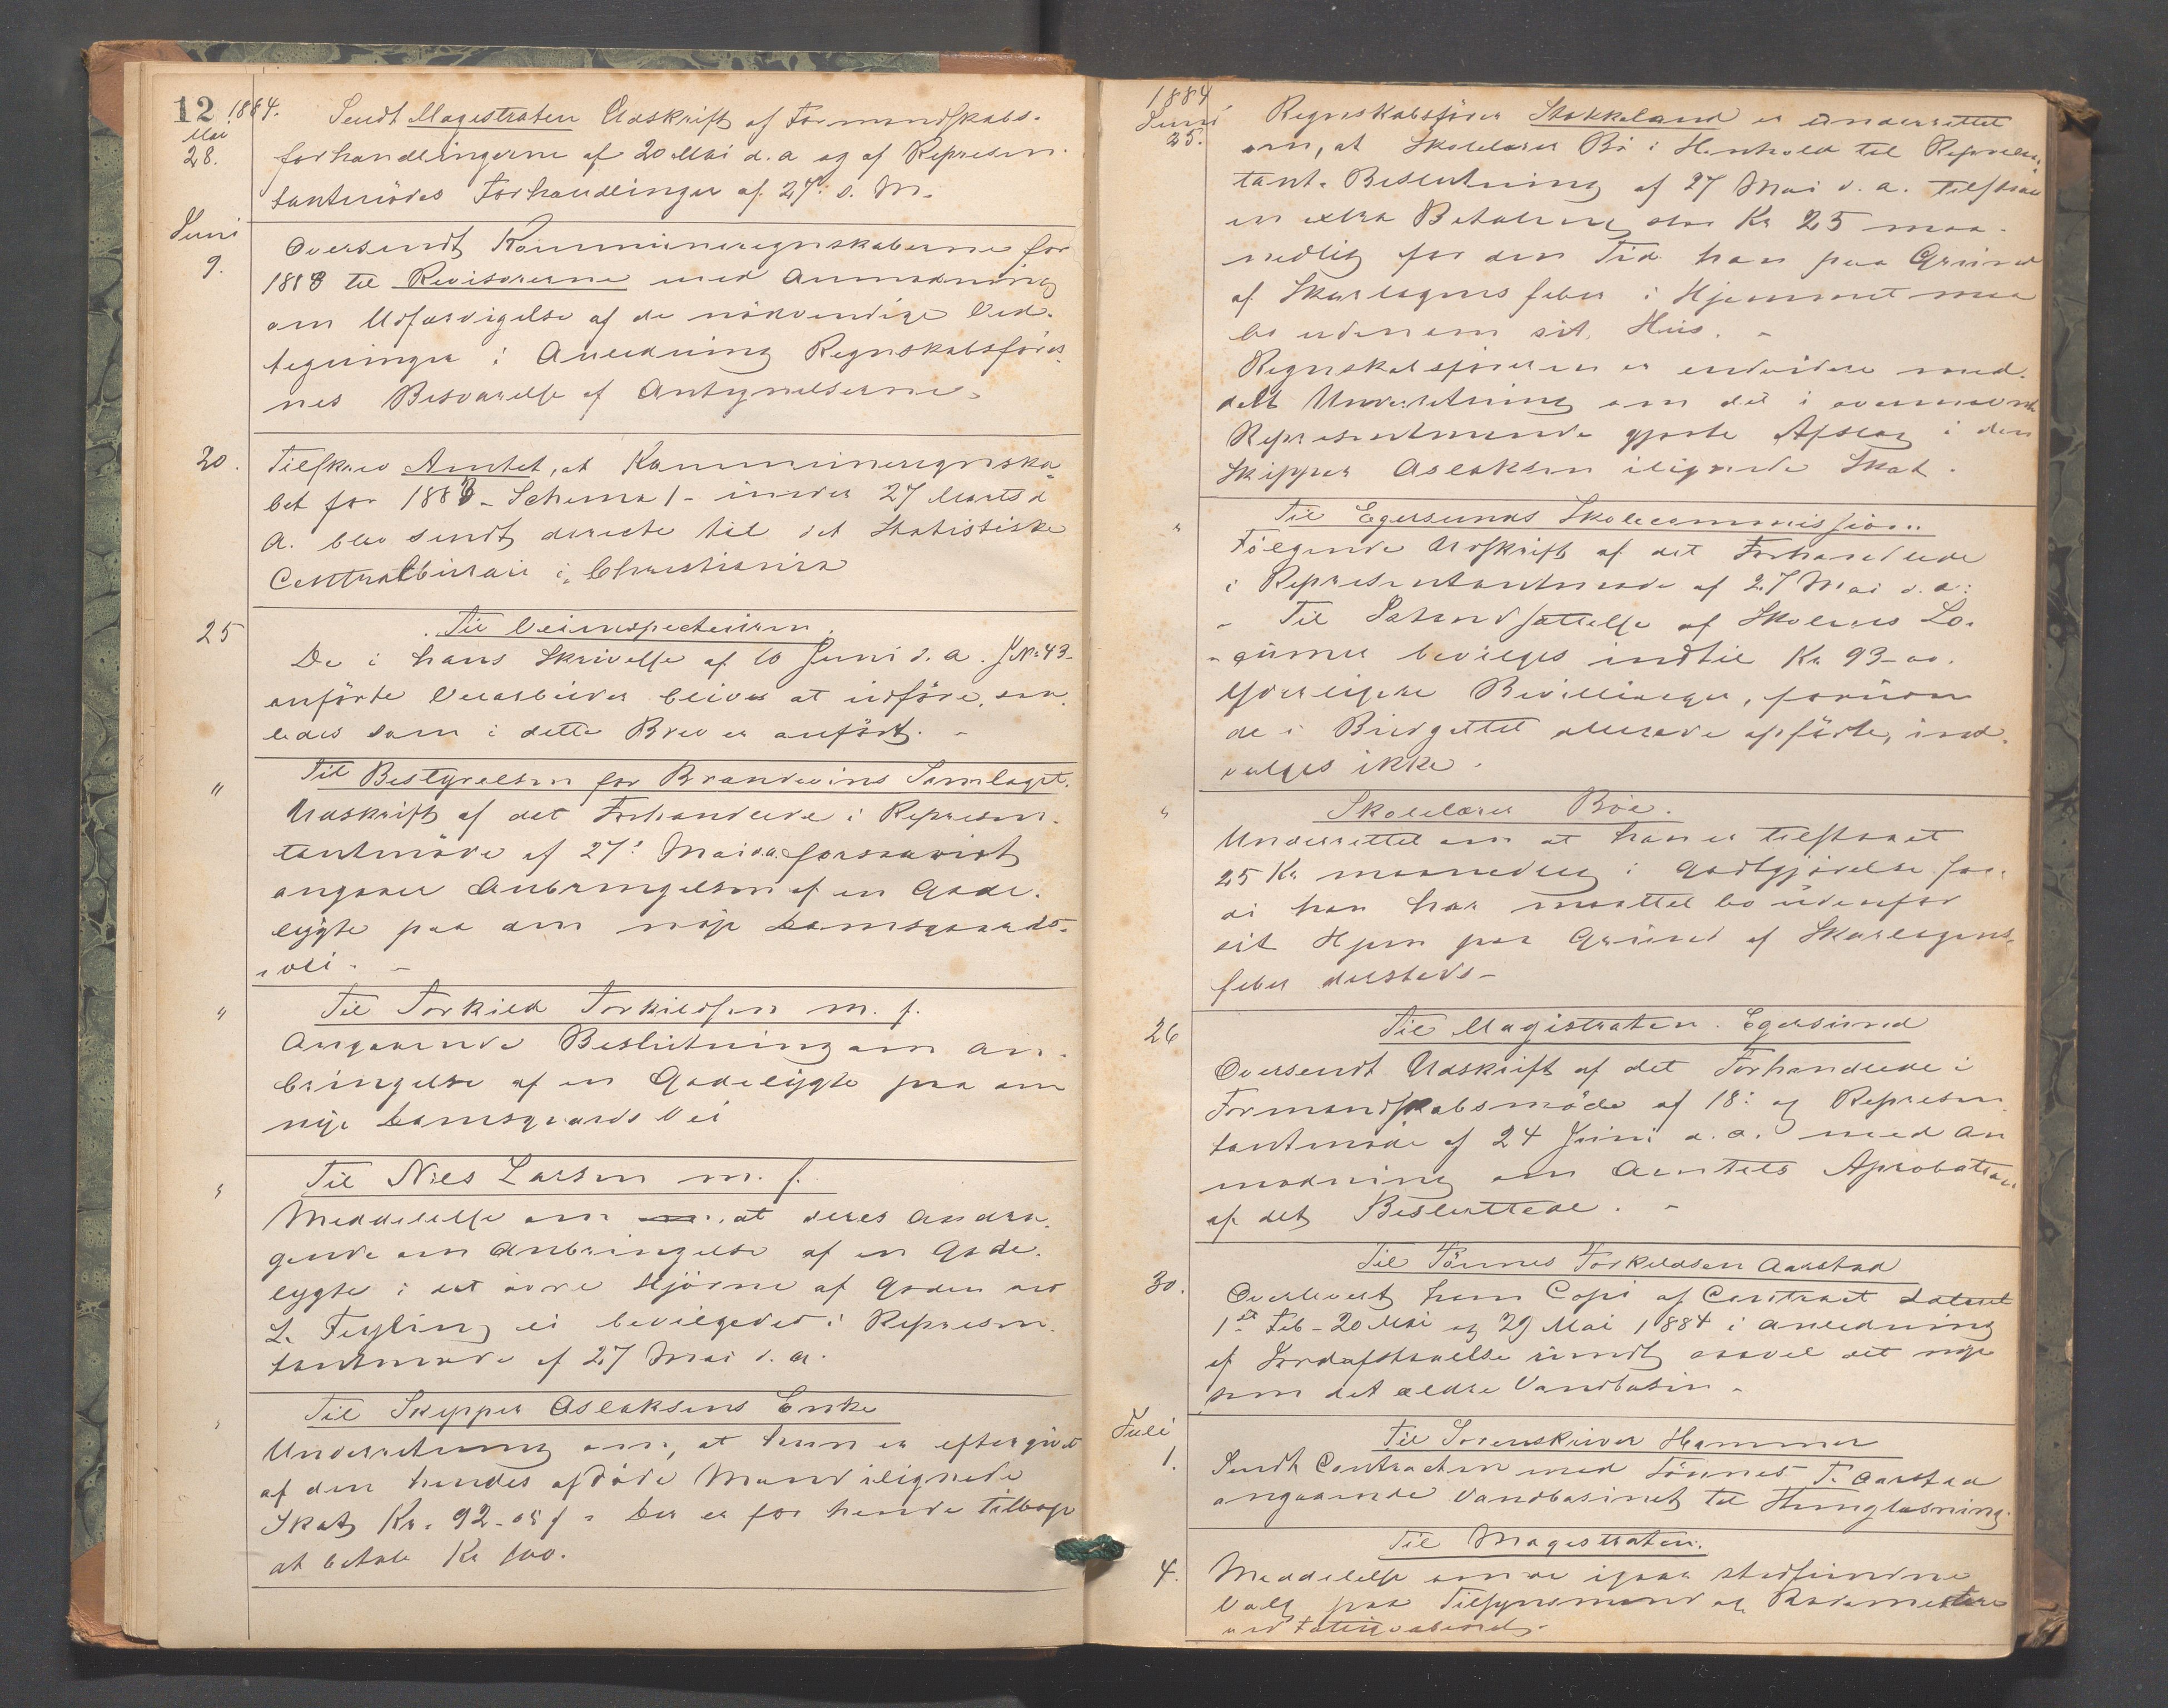 12 1884.
Mai
28.
Sendt Magistraten Udskrift af Formandskabs-
forhandlingerne af 20 Mai d.a og af Represen-
tantmödes Forhandlinger af 27: s. M.
Juni
9.
Oversendt Kommuneregnskaberne for
1883 til Revisorerne med Anmodning
om Udfærdigelse af de nödvendige Ved-
tegninger i Anledning Regnskabsförer-
nes Besvarelse af Antegnelserne.
20.
Tilskrev Amtet, at Kommuneregnska-
bet for 1883 - Schema 1 - under 27 Marts d
A. blev sendt directe til det Statistiske
Centralbureau i Christiania
25
Til Veiinspecteuren.
De i hans Skrivelse af 10 Juni d.a. J.No 43-
anförte Veiarbeider bliver at udföre, saa-
ledes som i dette Brev er anfört. -
"
Til Bestyrelsen for Brændevins Samlaget.
Udskrift af det Forhandlede i Represen-
tantmöde af 27: Mai d.a. forsaavidt
angaaer Anbringelsen af en Gade-
lygte paa den nye Damsgaards-
vei. -
"
Til Torkild Torkildsen m. f.
Angaaende Beslutning om An-
bringelse af en Gadelygte paa den
nye Damsgaards Vei
"
Til Niels Larsen m. f.
Meddelelse om at deres Andra-
gende om Anbringelse af en Gade-
lygte i det övre Hjörne af Gaden ved
L. Feyling ei bevilgedes i Represen-
tantmöde af 27 Mai d. a.
"
Til Skipper Aslaksens Enke
Underretning om, at hun er eftergivet
af den hendes afdöde Mand ilignede
Skat Kr. 92- Der er for hende Tilbage
at betale Kr 100.
1884
Juni
25.
Regnskabsförer Stokkeland er underrettet
om, at Skolelærer Bö i Henhold til Represen-
tant. Beslutning af 27 Mai d. a. tilstaaes
en extra Betaling stor Kr 25 maa-
nedlig for den Tid han paa Grund
af Skarlagensfeber i Hjemmet maa
bo udenom sit Hus. -
Regnskabsföreren er endvidere med-
delt Underretning om det i ovennævnte
Representmöde gjorte Afslag i den
Skipper Aslaksen ilignede Skat.
"
Til Egersunds Skolecommission
Fölgende Udskrift af det Forhandlede
i Representantmöde af 27 Mai d. a:
- Til Istandsættelse af Skolens Lo-
- cumer bevilges indtil Kr 93-00.
Yderligere Bevillinger, foruden
de i Budgettet allerede opförte, ind-
vilges ikke.
"
Skolelærer Böe.
Underrettet om at han er tilstaaet
25 Kr maanedlig i Godtgjörelse for-
di han har maattet bo udenfor
sit Hjem paa Grund af Skarlagens-
feber dersteds-
26
Til Magistraten. Egersund
Oversendt Udskrift af det Forhandlede i
Formandskabsmöde af 18: og Represen
tantmöde af 24 Juni d. a. med An
modning om Amtets Aprobation
af det Besluttede. -
30.
Til Tönnes Torkildsen Aarstad
Overlevert ham Copi af Contract dateret
1ste Feb - 20 Mai og 29 Mai 1884 i Anledning
af Jordafstaaelse rundt saavel det nye
som det ældre Vandbasin -
Juli
1.
Til Sorenskriver Hammer
Sendt Contracten med Tönnes T. Aarstad
angaaende Vandbasinet til Thinglæsning.
4.
Til Magistraten.
Meddelelse om de igaar stedfundne
Valg paa Tilsynsmænd og Rodemestere
ved Fattigvæsenet -